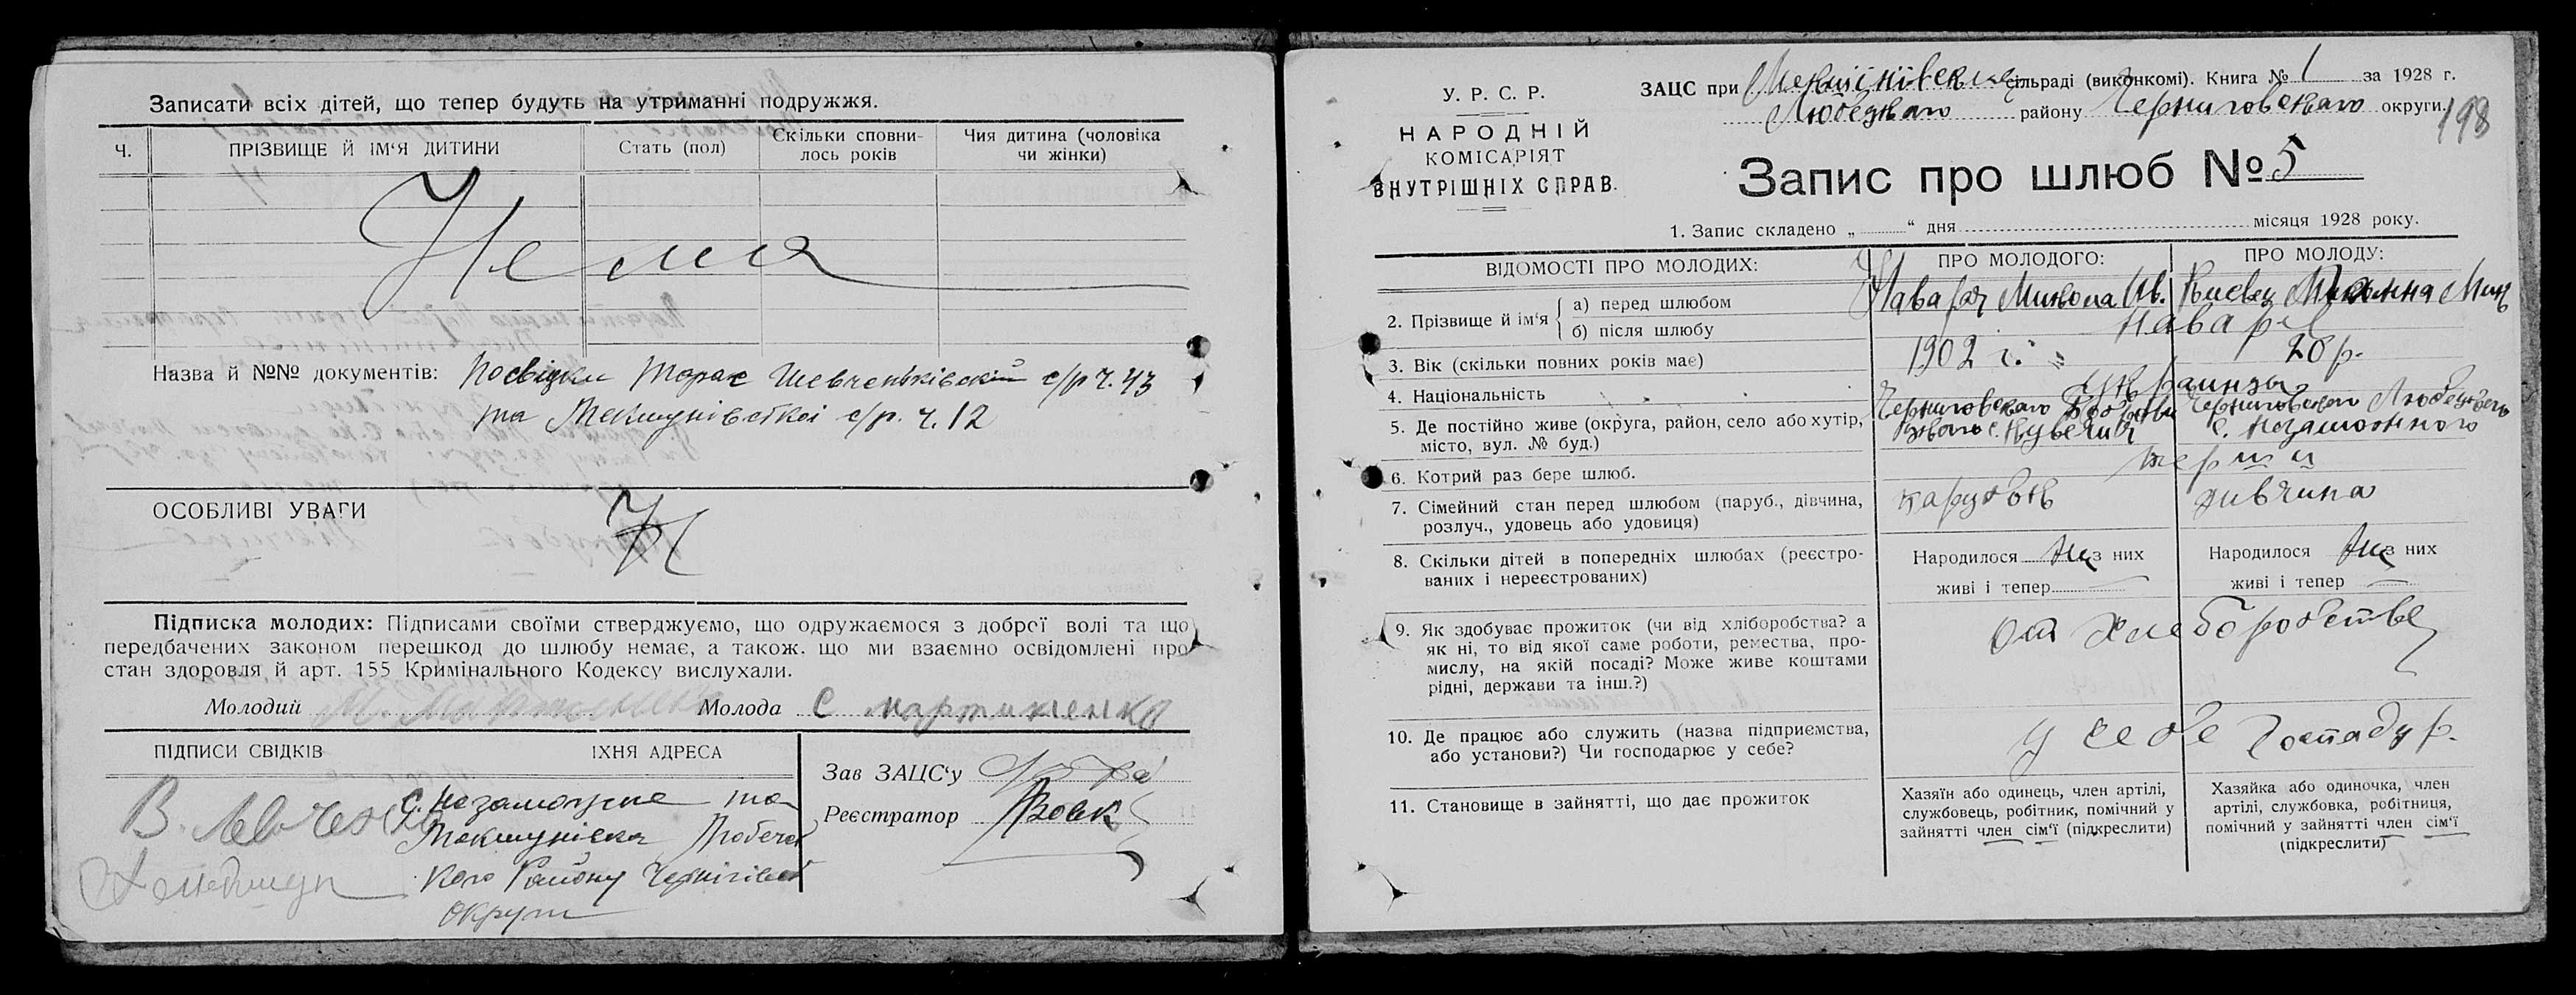 Записати всіх дітей, що тепер будуть на утриманні подружжя.
Ч.
ПРІЗВИЩЕ Й ІМ'Я ДИТИНИ
Стать (пол)
Скільки сповни-
лось років
Чия дитина (чоловіка
чи жінки)
Нема
Назва й №№ документів: Посвідки Тарас Шевченківской с/р ч. 43
та Макшунівської с/р. ч. 12
ОСОБЛИВІ УВАГИ
Підписка молодих: Підписами своїми стверджуємо, що одружаємося з доброї волі та що
передбачених законом перешкод до шлюбу немає, а також. що ми взаємно освідомлені про
стан здоровля й арт. 155 Кримінального Кодексу вислухали.
Молодий
Молода С мартиненко
ПІДПИСИ СВІДКІВ
ЇХНЯ АДРЕСА
Зав ЗАЦС'у
Реєстратор Вовк
с. Незаможне та
Макшунівка Любеч
кого Району Чернігівск
округи
У. Р. С. Р.
НАРОДНІЙ
КОМІСАРІЯТ
ВНУТРІШНІХ СПРАВ.
ЗАЦС при сільраді (виконкомі). Книга № 1 за 1928 г.
Любецкаго району Черниговскаго округи.
198
Запис про шлюб № 5
1. Запис складено „ “ дня місяця 1928 року.
ВІДОМОСТІ ПРО МОЛОДИХ:
ПРО МОЛОДОГО:
ПРО МОЛОДУ:
2. Прізвище й ім'я
а) перед шлюбом
б) після шлюбу
Микола Ів.
3. Вік (скільки повних років має)
1902 г.
20 р.
4. Національність
Украинцы
5. Де постійно живе (округа, район, село або хутір,
місто, вул. № буд.)
Черниговскаго
Черниговскаго Любецкого
с. Незаможного
6. Котрий раз бере шлюб.
перши
7. Сімейний стан перед шлюбом (паруб., дівчина,
розлуч., удовець або удовиця)
парубок
дивчина
8. Скільки дітей в попередніх шлюбах (реєстро-
ваних і нереєстрованих)
Народилося з них
живі і тепер
Народилося з них
живі і тепер
9. Як здобуває прожиток (чи від хліборобства? а
як ні, то від якої саме роботи, ремества, про-
мислу, на якій посаді? Може живе коштами
рідні, держави та інш.?)
от хлеборобства
10. Де працює або служить (назва підприємства,
або установи?) Чи господарює у себе?
у себе господар.
11. Становище в зайнятті, що дає прожиток
Хазяїн або одинець, член артілі,
службовець, робітник, помічний у
зайнятті член сім'ї (підкреслити)
Хазяйка або одиночка, член
артілі, службовка, робітниця,
помічний у зайнятті член сім'ї
(підкреслити)